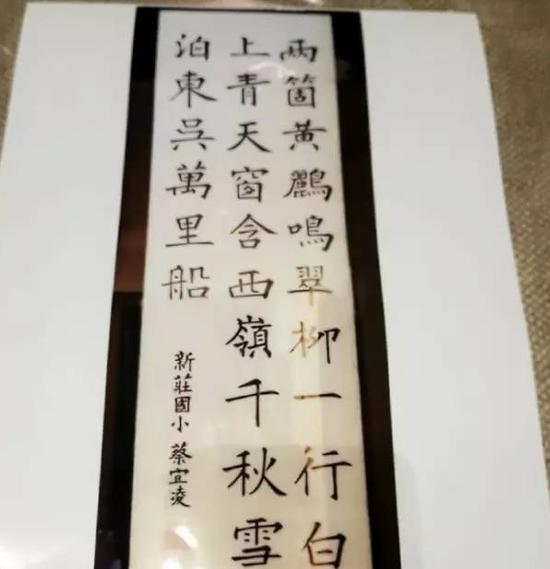 兩箇黃鸝鳴翠柳一行白
上青天窗含西嶺千秋雪
泊東吳萬里船
新莊國小 蔡宜凌